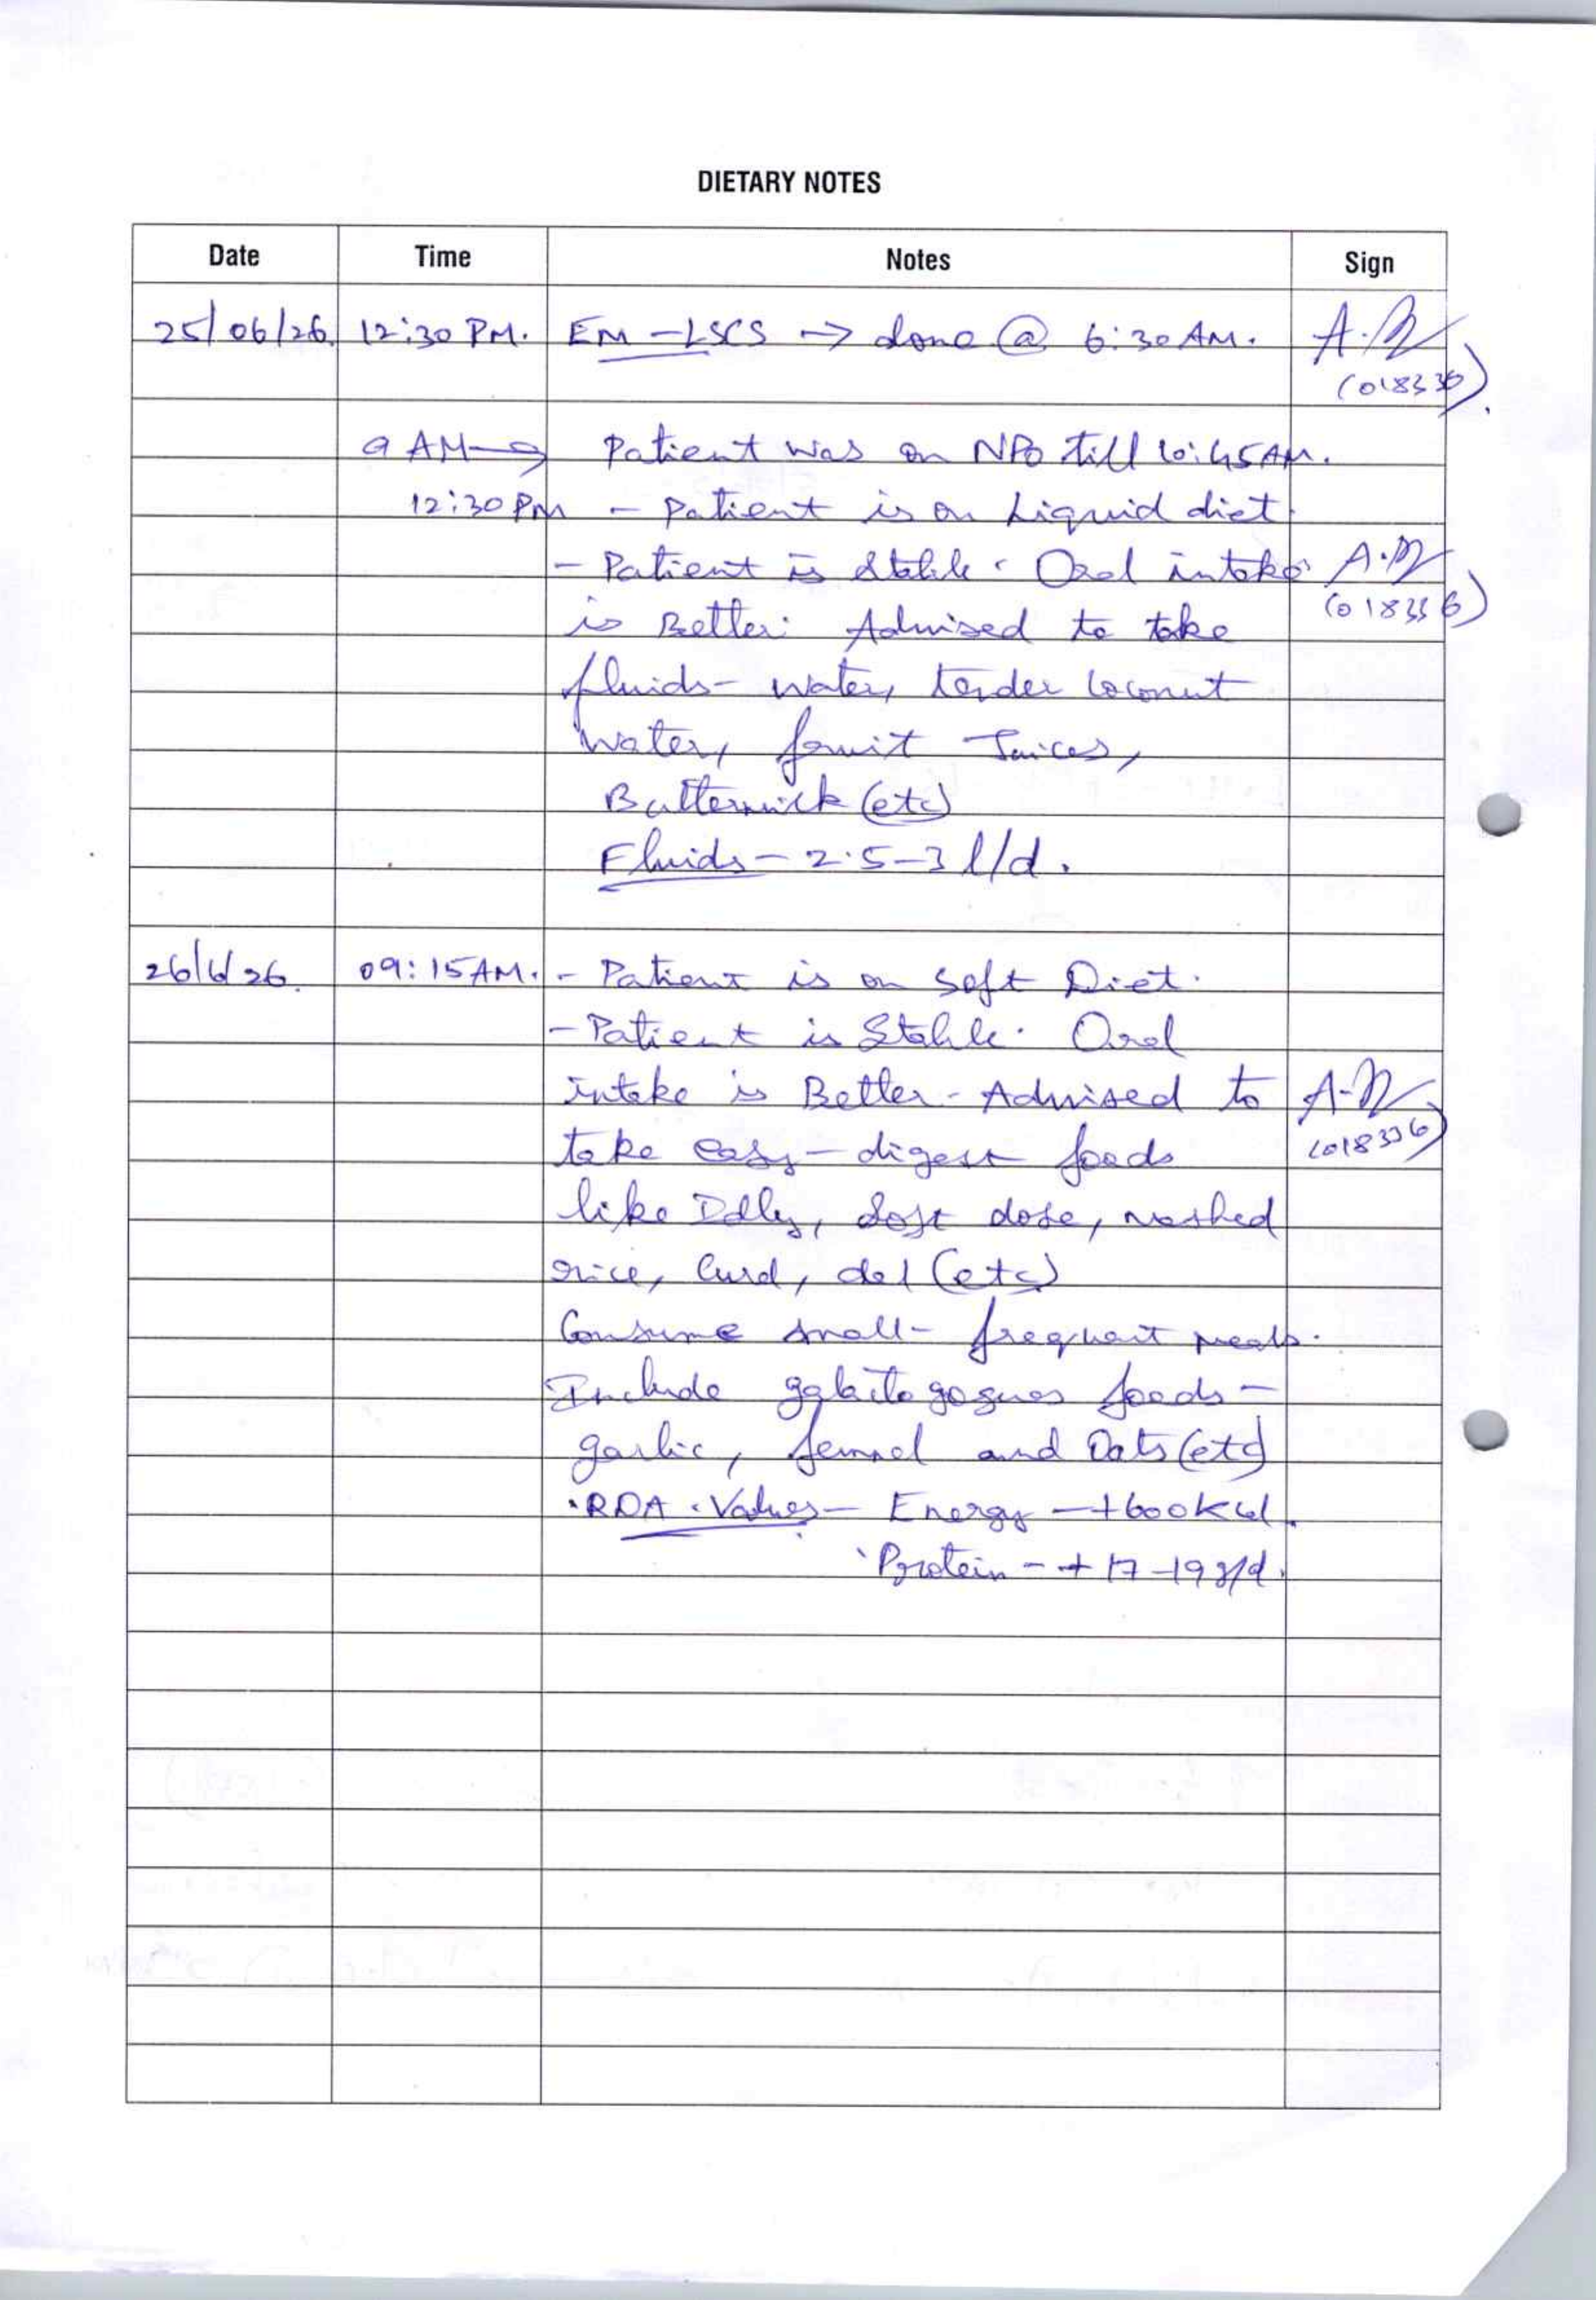 DIETARY NOTES
Date Time Notes Sign
25/06/26. 12:30 PM. EM - LSCS → done @ 6:30 AM.
9 AM → Patient was on NPO till 10:45 AM.
12:30 PM - Patient is on Liquid diet.
- Patient is stable. Oral intake
is Better. Advised to take
fluids - water, tender coconut
water, fruit Juices,
Buttermilk (etc)
Fluids - 2.5-3 l/d.
26/6/26. 09:15 AM. - Patient is on soft Diet.
- Patient is Stable. Oral
intake is Better - Advised to
take easy - digest foods
like Idly, soft dose, mashed
rice, Curd, dal (etc)
Consume small - frequent meals.
Include galactogogues foods -
garlic, fennel and Oats (etc)
RDA. Values - Energy - +600 kcal.
Protein - + 17-19 g/d.